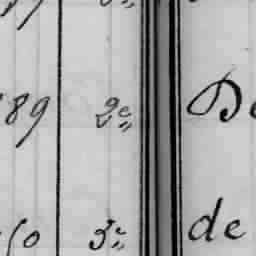 89 2e„ De
50 3e„ de